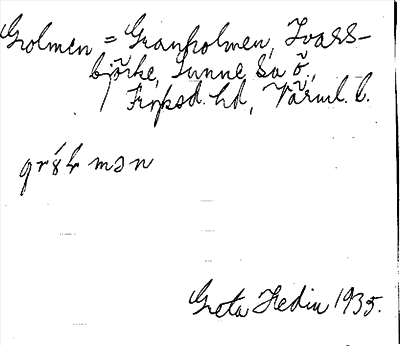 Grolmen = Granholmen, Ivars-
björke, Sunne sn ö,
Fryksd. hd, Värml. l.
Greta Hedin 1935.